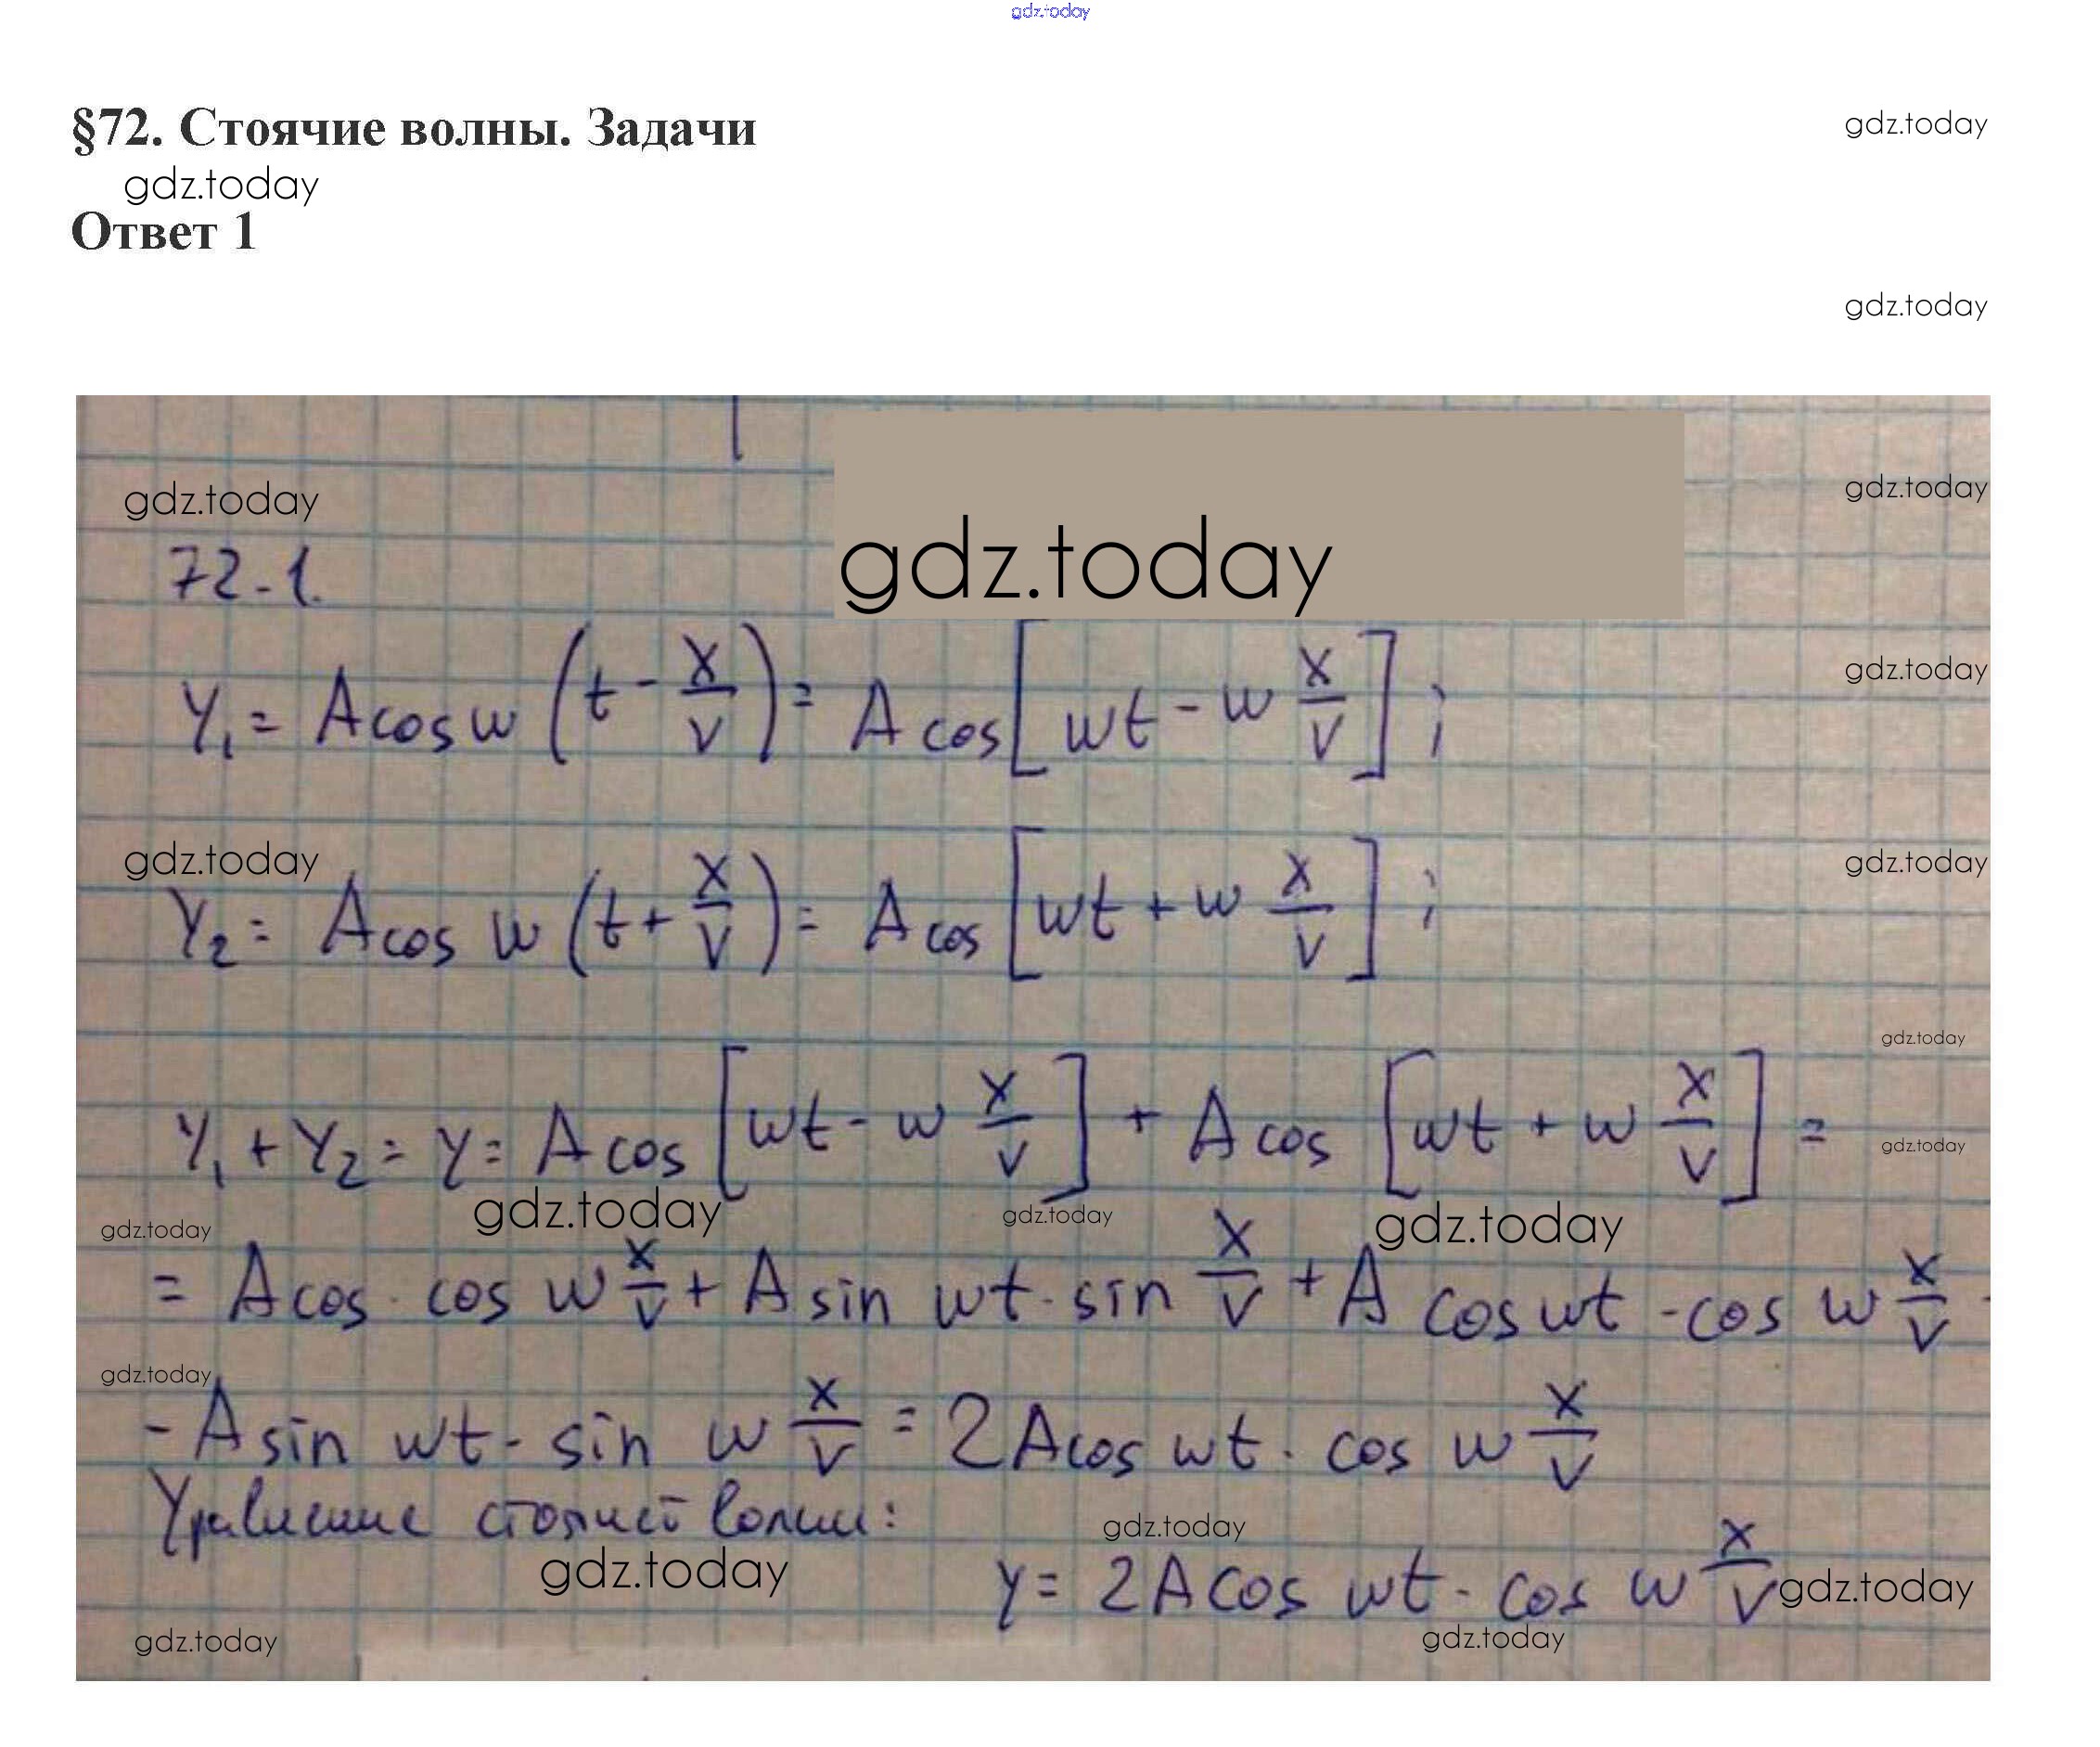 gdz.today
§72. Стоячие волны. Задачи
gdz.today
gdz.today
Ответ 1
gdz.today
gdz.today
gdz.today
gdz.today
72-1.
Y₁ = A cos w (t - x/v) = A cos [wt - w x/v] ;
gdz.today
gdz.today
gdz.today
Y₂ = A cos w (t + x/v) = A cos [wt + w x/v] ;
gdz.today
Y₁ + Y₂ = y = A cos [wt - w x/v] + A cos [wt + w x/v] =
gdz.today
gdz.today gdz.today gdz.today gdz.today
= A cos · cos w x/v + A sin wt · sin x/v + A cos wt · cos w x/v -
gdz.today
- A sin wt · sin w x/v = 2A cos wt · cos w x/v
Уравнение стоячей волны:
gdz.today
y = 2A cos wt · cos w x/v
gdz.today
gdz.today
gdz.today
gdz.today